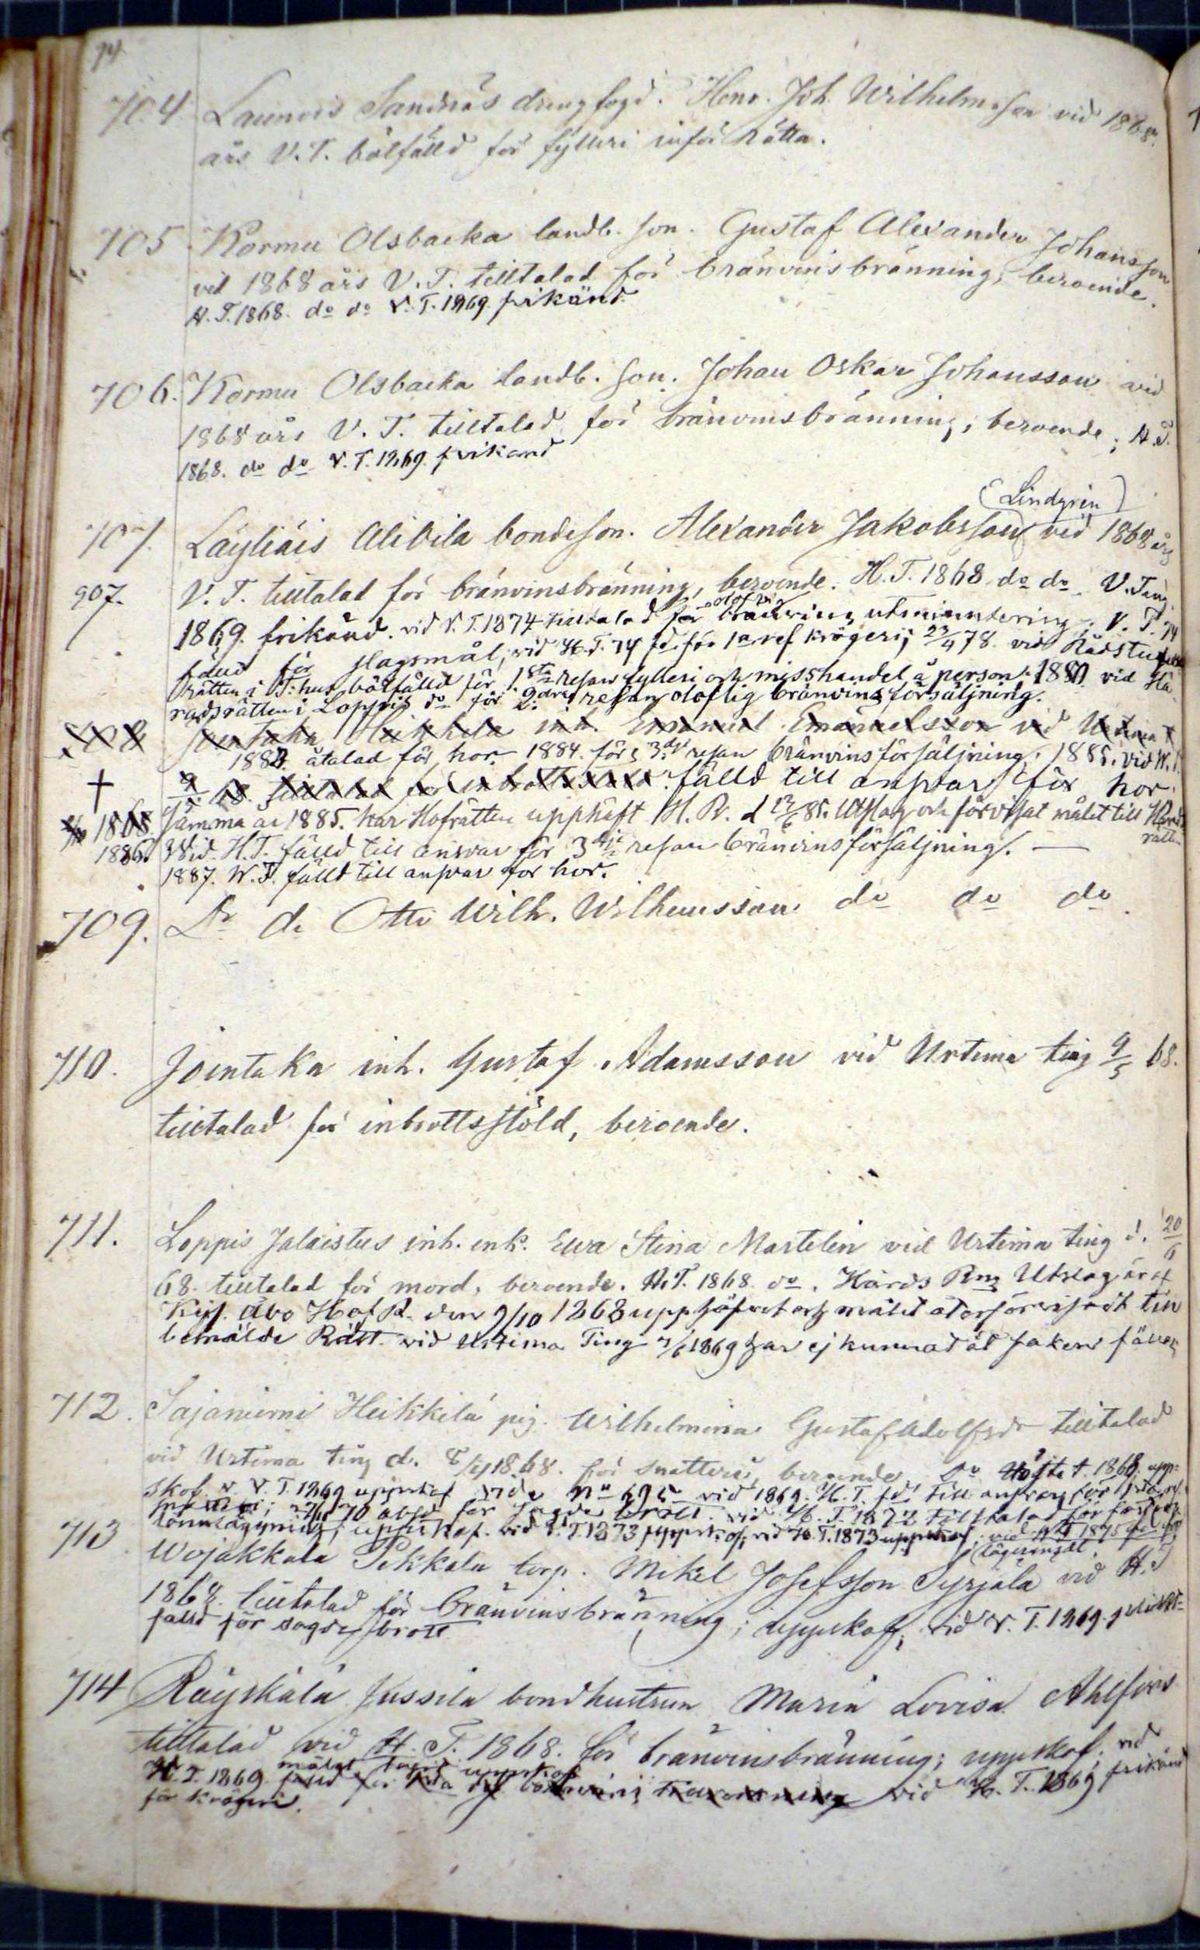 74
704 Launois Sandnäs drengfogd. Henr. Joh. Wilhelmsson vid 1868
års V. T. bötfälld för fylleri inför Rätta.
705 Kormu Olsbacka landb. son. Gustaf Alexander Johansson
vid 1868 års V. T. tilltalad för bränvinsbränning, beroende.
H. T. 1868. do do V. T. 1869 frikänd
706. Kormu Olsbacka landb. son. Johan Oskar Johansson vid
1868 års V. T. tilltalad för bränvinsbränning; beroende; H. T.
1868. do do V. T. 1869. frikänd
(Lindgrén)
707. Läyliäis Alivila bondeson. Alexander Jakobsson vid 1868 års
907. V. T. tilltalad för bränvinsbränning, beroende. H. T. 1868 do do. V. Ting
olofl.
1869. frikänd. vid V. T. 1874 tilltalad för bränvins utminutering. V. T. 74
fälld för slagsmål; vid H. T. 74 fd för 1a res krögeri; 23/4 78. vid Rådstufvu
Rätten i T:hus bötfälld för 1sta resan fylleri och misshandel å person; 1880 vid Hä-
radsrätten i Loppis do för 2dra resan oloflig bränvins försäljning.
708 Jointaka Heikkilä inh. Emanuel Emanuelsson vid Urtima t
1883. åtalad för hor. 1884. för 3dje resan bränvinsförsäljning. 1885. vid W. T.
9/5 68 tilltalad för inbrottsstöld fälld till ansvar för hor.
1868 Samma år 1885. har Hofrätten upphäft H. R. d 12/6 85. Utslag och förvisat målet till Härads
rätten
1886. vid. H. T. fälld till ansvar för 3dje resan bränvinsförsäljning. —
1887. W. T. fälld till ansvar för hor.
709. Do do Otto Wilh. Wilhemsson do do do
710. Jointaka inh. Gustaf Adamsson vid Urtima ting 9/5 68.
tilltalad för inbrottsstöld, beroende.
711. Loppis Jalaistus inh. enk. Ewa Stina Martelin vid Urtima ting d. 20/6
68. tilltalad för mord, beroende. H. T. 1868. do. Härds Rns Utslag är af
Kejs. Åbo Hof R. den 9/10 1868 upphäfvet och målet återförvisadt till
bemälde Rätt. vid Urtima Ting 7/6 1869 har ej kunnat åt saken fällas
712. Sajaniemi Heikkilä pig. Wilhelmina Gustaf Adolfsdr tilltalad
vid Urtima ting d. 1868. för snatteri, beroende. Do Höstet. 1868. upp-
skof. v. V. T. 1869 uppskof vide No 695 vid 1869. H. T. fd till ansvar för
snatteri; 70 åtald för sagde brott. vid H. T. 1872 tilltalad för
lönnlägring; uppskof. vid V. T. 1873 uppskof, vid H. T. 1873 uppskof. vid 1875 för
lägersmål.
713 Wojakkala Pekkala torp. Mikel Josefsson Syrjälä vid H. T
1868. tilltalad för bränvinsbränning; uppskof; vid V. T. 1869. plikt-
fälld för sagde brott
714 Räyskälä Jussila bondhustrun Maria Lovisa Ahlfors
tilltalad vid H. T. 1868. för bränvinsbränning; uppskof. vid
målet uppskof
V. T. 1869 fälld för bränvins vid H. T. 1869 frikänd
för krögeri.